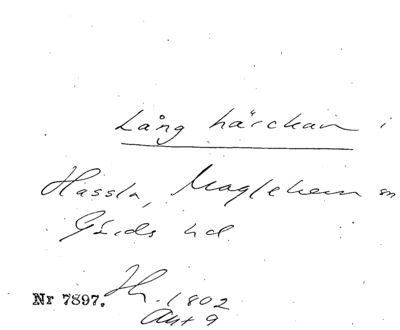 Lång härckan i
Hassla, Maglehem sn
Gärds hd.
Nr 7897. Hh. 1802
Akt 9